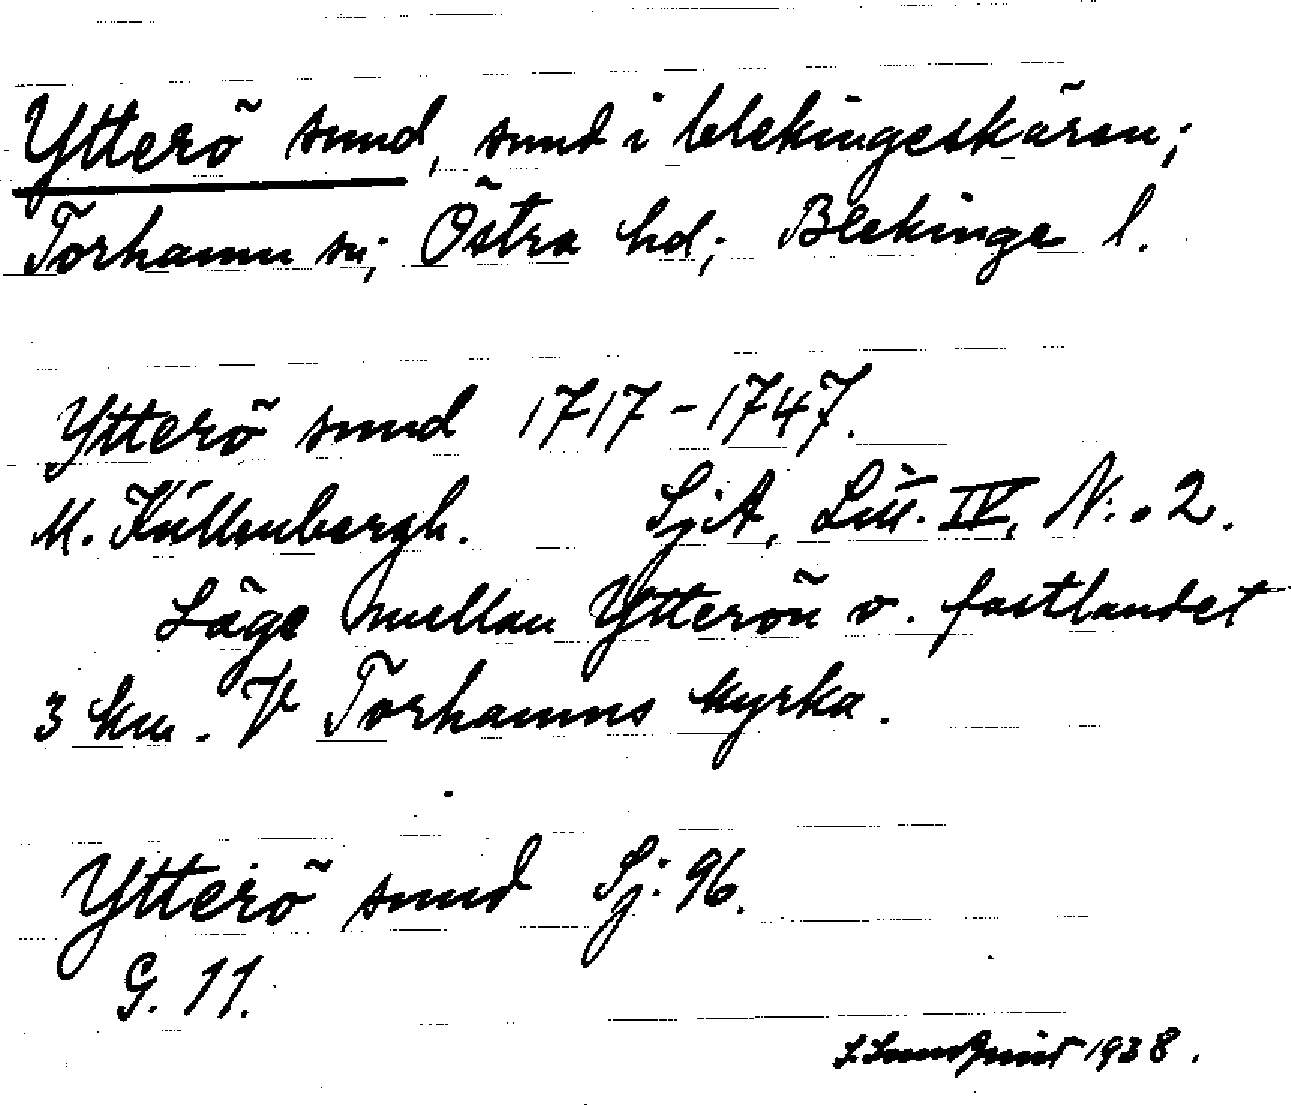 Ytterö sund, sund i blekingeskären;
Torhamn sn; Östra hd; Blekinge l.
Ytterö sund 1717-1747.
M. Kullenbergh. SjA, Litt. IV, N:o 2.
Läge mellan Ytterön o. fastlandet
3 km. V Torhamns kyrka.
Ytterö sund Sj: 96.
G. 11.
1938.